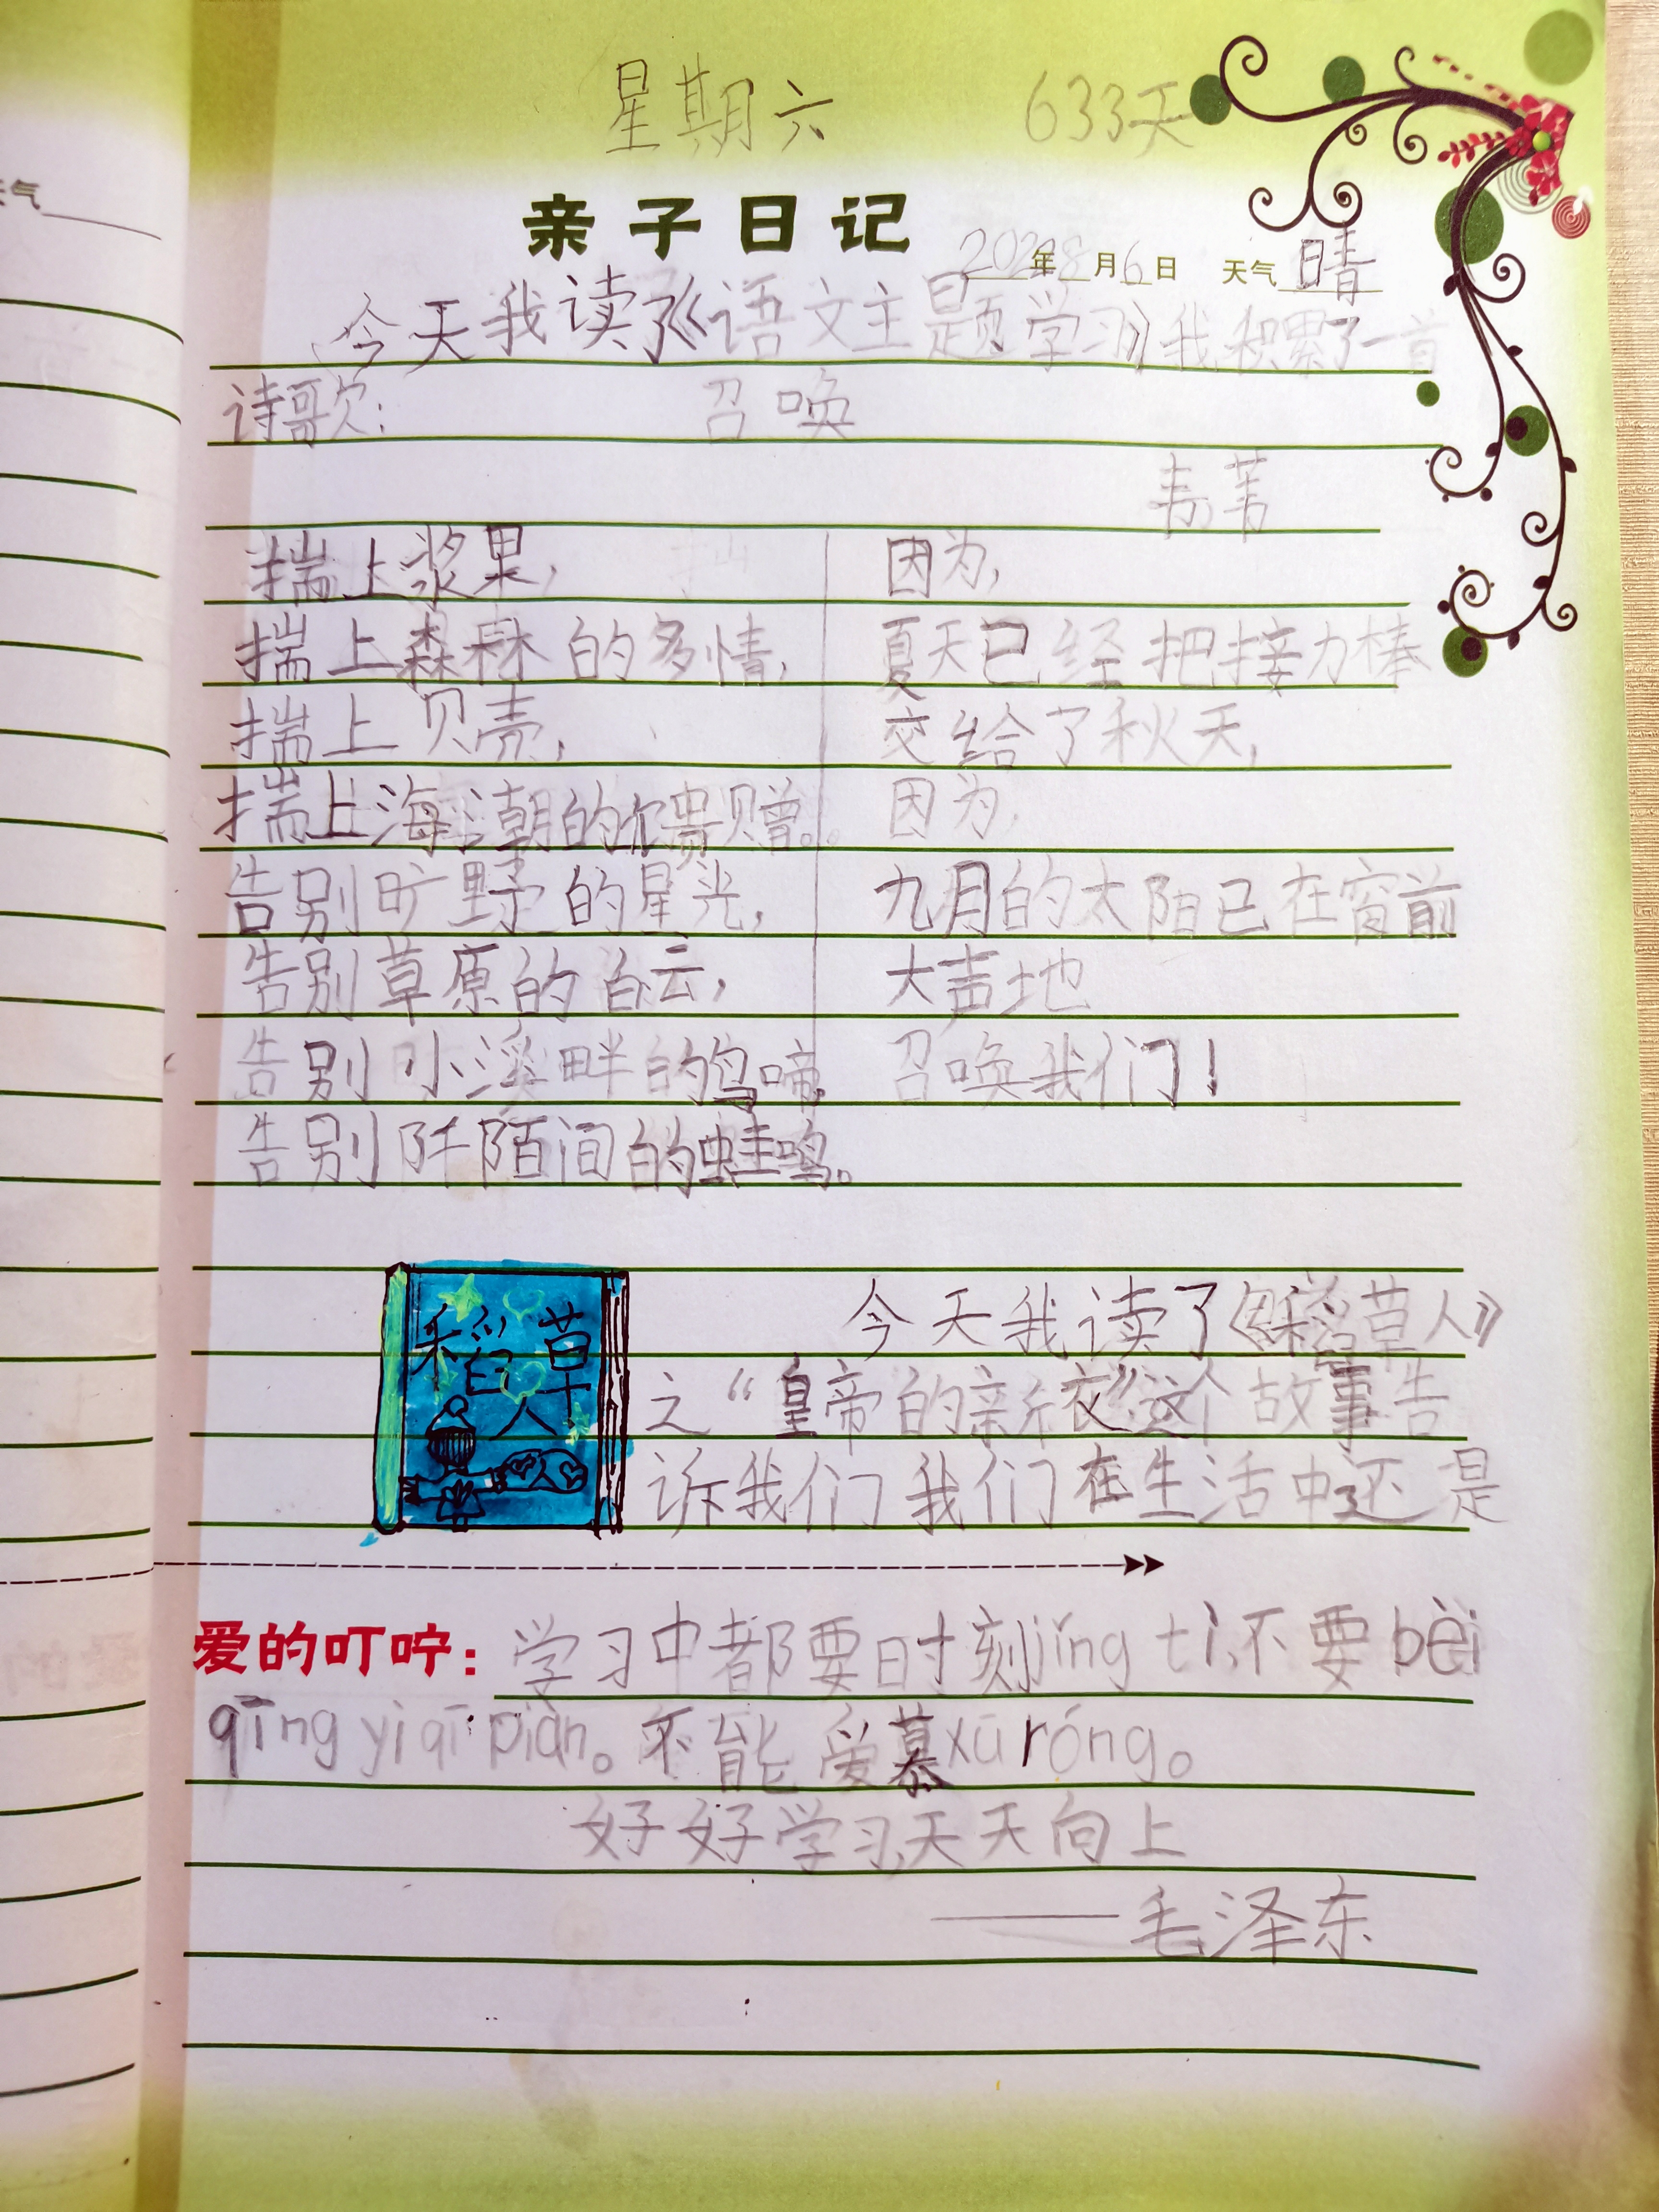 星期六 633天
天气
亲子日记
年8月6日 天气 晴
今天我读了《语文主题学习》我积累了一首
诗歌: 召唤
韦苇
揣上浆果,
揣上森林的多情,
揣上贝壳,
揣上海潮的馈赠。
告别旷野的星光,
告别草原的白云,
告别小溪畔的鸟啼,
告别阡陌间的蛙鸣。
因为,
夏天已经把接力棒
交给了秋天,
因为,
九月的太阳已在窗前
大声地
召唤我们!
稻草人
今天我读了《稻草人》
之“皇帝的新衣”这个故事告
诉我们我们在生活中还是
爱的叮咛: 学习中都要时刻jǐng tì,不要bèi
qīng yì qī piàn。不能爱慕xū róng。
好好学习,天天向上
——毛泽东